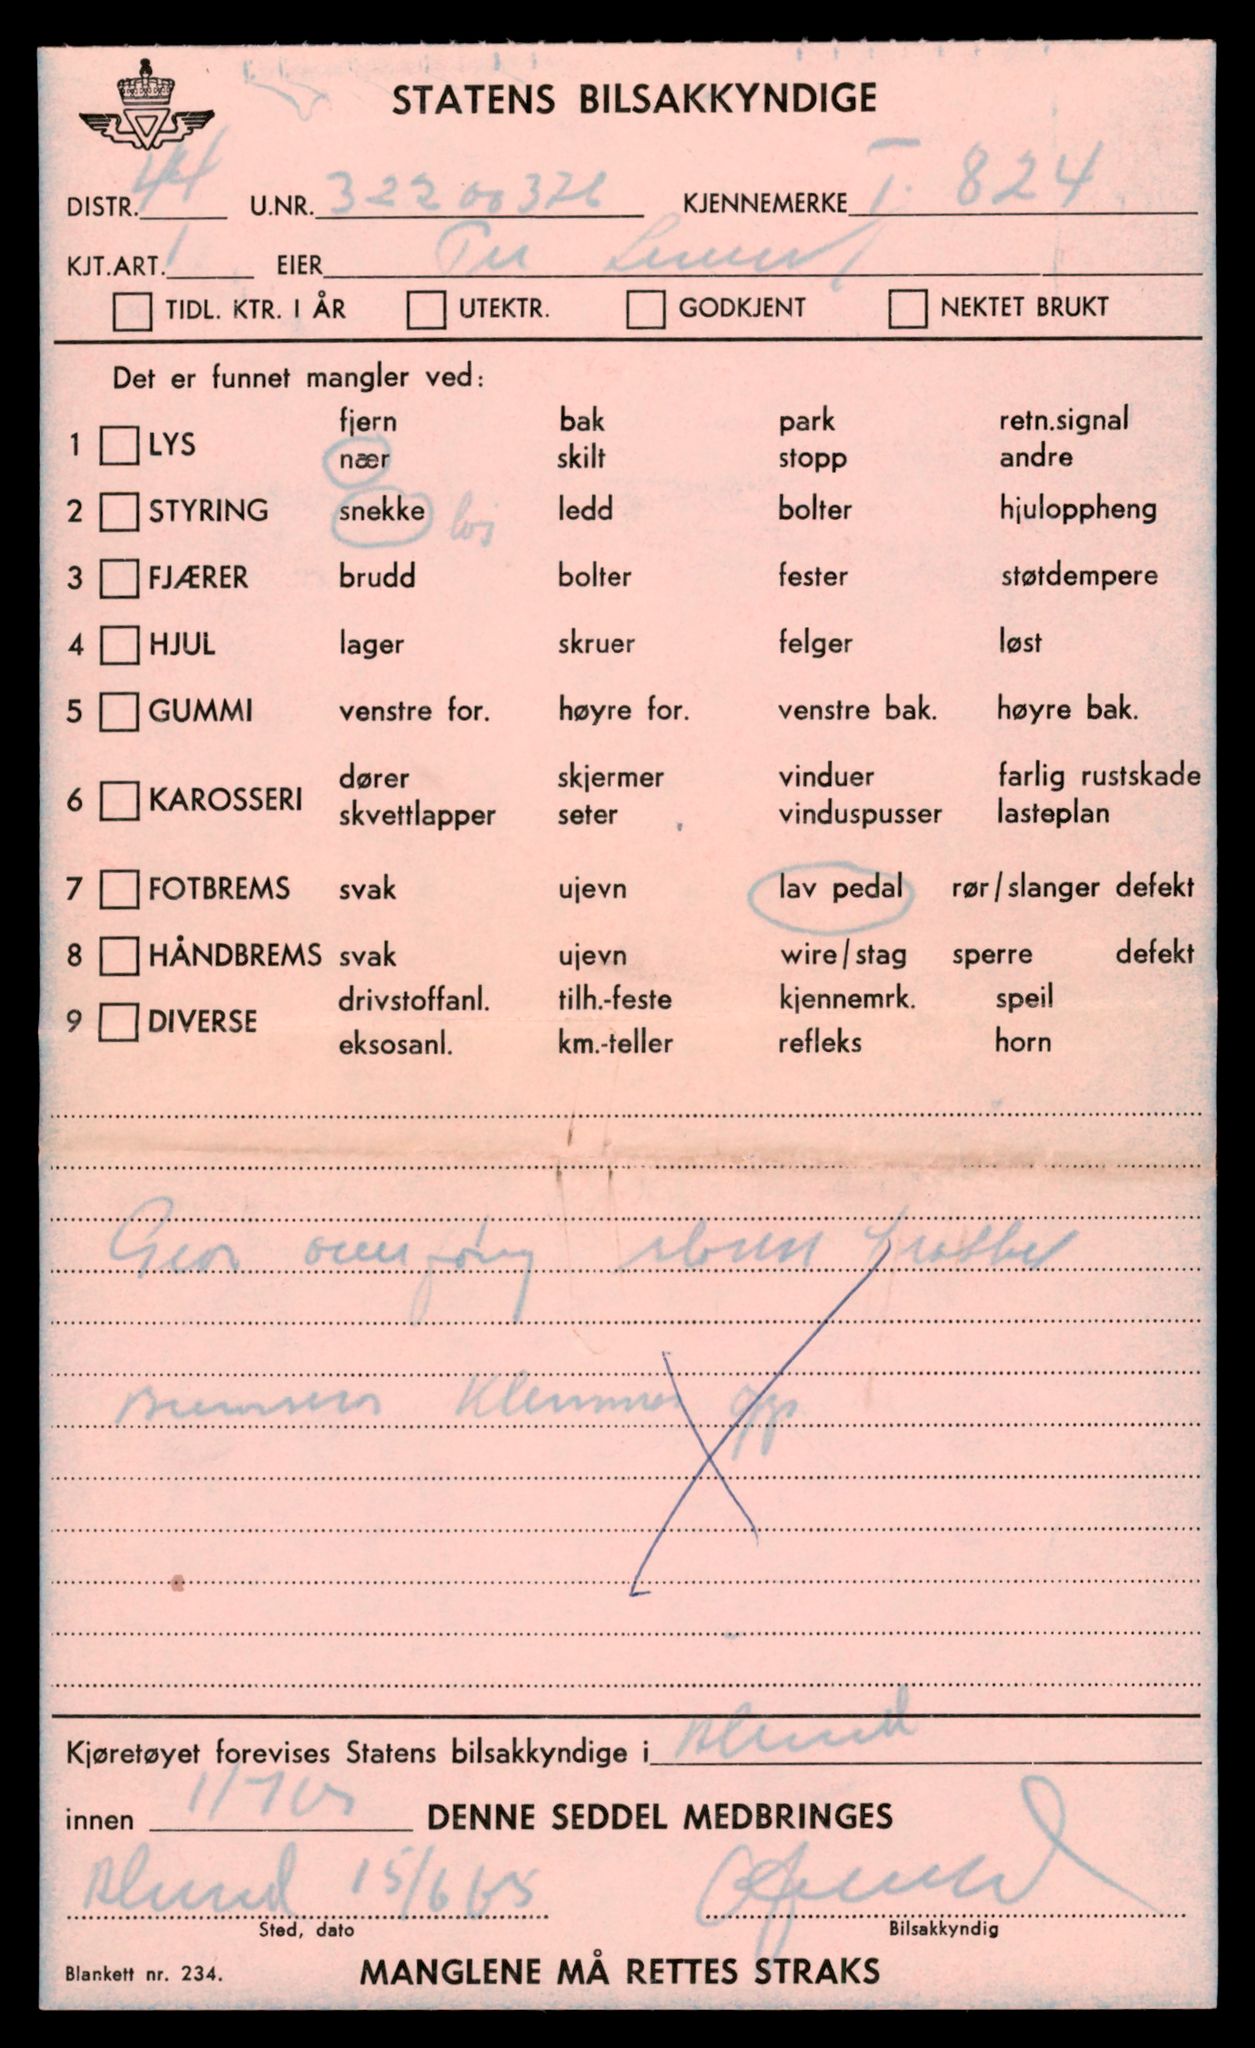 STATENS BILSAKKYNDIGE
DISTR. 44 U.NR. 32200326 KJENNEMERKE T. 824
KJT.ART. 1 EIER Per
TIDL. KTR. I ÅR UTEKTR. GODKJENT NEKTET BRUKT
Det er funnet mangler ved:
fjern bak park retn.signal
1 LYS
nær skilt stopp andre
2 STYRING snekke løs ledd bolter hjuloppheng
3 FJÆRER brudd bolter fester støtdempere
4 HJUL lager skruer felger løst
5 GUMMI venstre for. høyre for. venstre bak. høyre bak.
dører skjermer vinduer farlig rustskade
6 KAROSSERI
skvettlapper seter vinduspusser lasteplan
7 FOTBREMS svak ujevn lav pedal rør/slanger defekt
8 HÅNDBREMS svak ujevn wire/stag sperre defekt
drivstoffanl. tilh.-feste kjennemrk. speil
9 DIVERSE
eksosanl. km.-teller refleks horn
Gear
Klemmer
Kjøretøyet forevises Statens bilsakkyndige i Ålesund
innen 1/7 65 DENNE SEDDEL MEDBRINGES
Ålesund 15/6 65
Sted, dato Bilsakkyndig
Blankett nr. 234. MANGLENE MÅ RETTES STRAKS